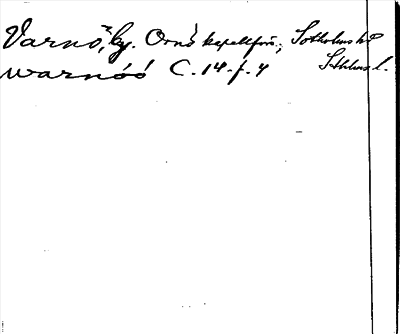 Varnö, by. Ornö kapellförs., Sotholms hd
warnóó C. 14. f. 4 Sthlms l.